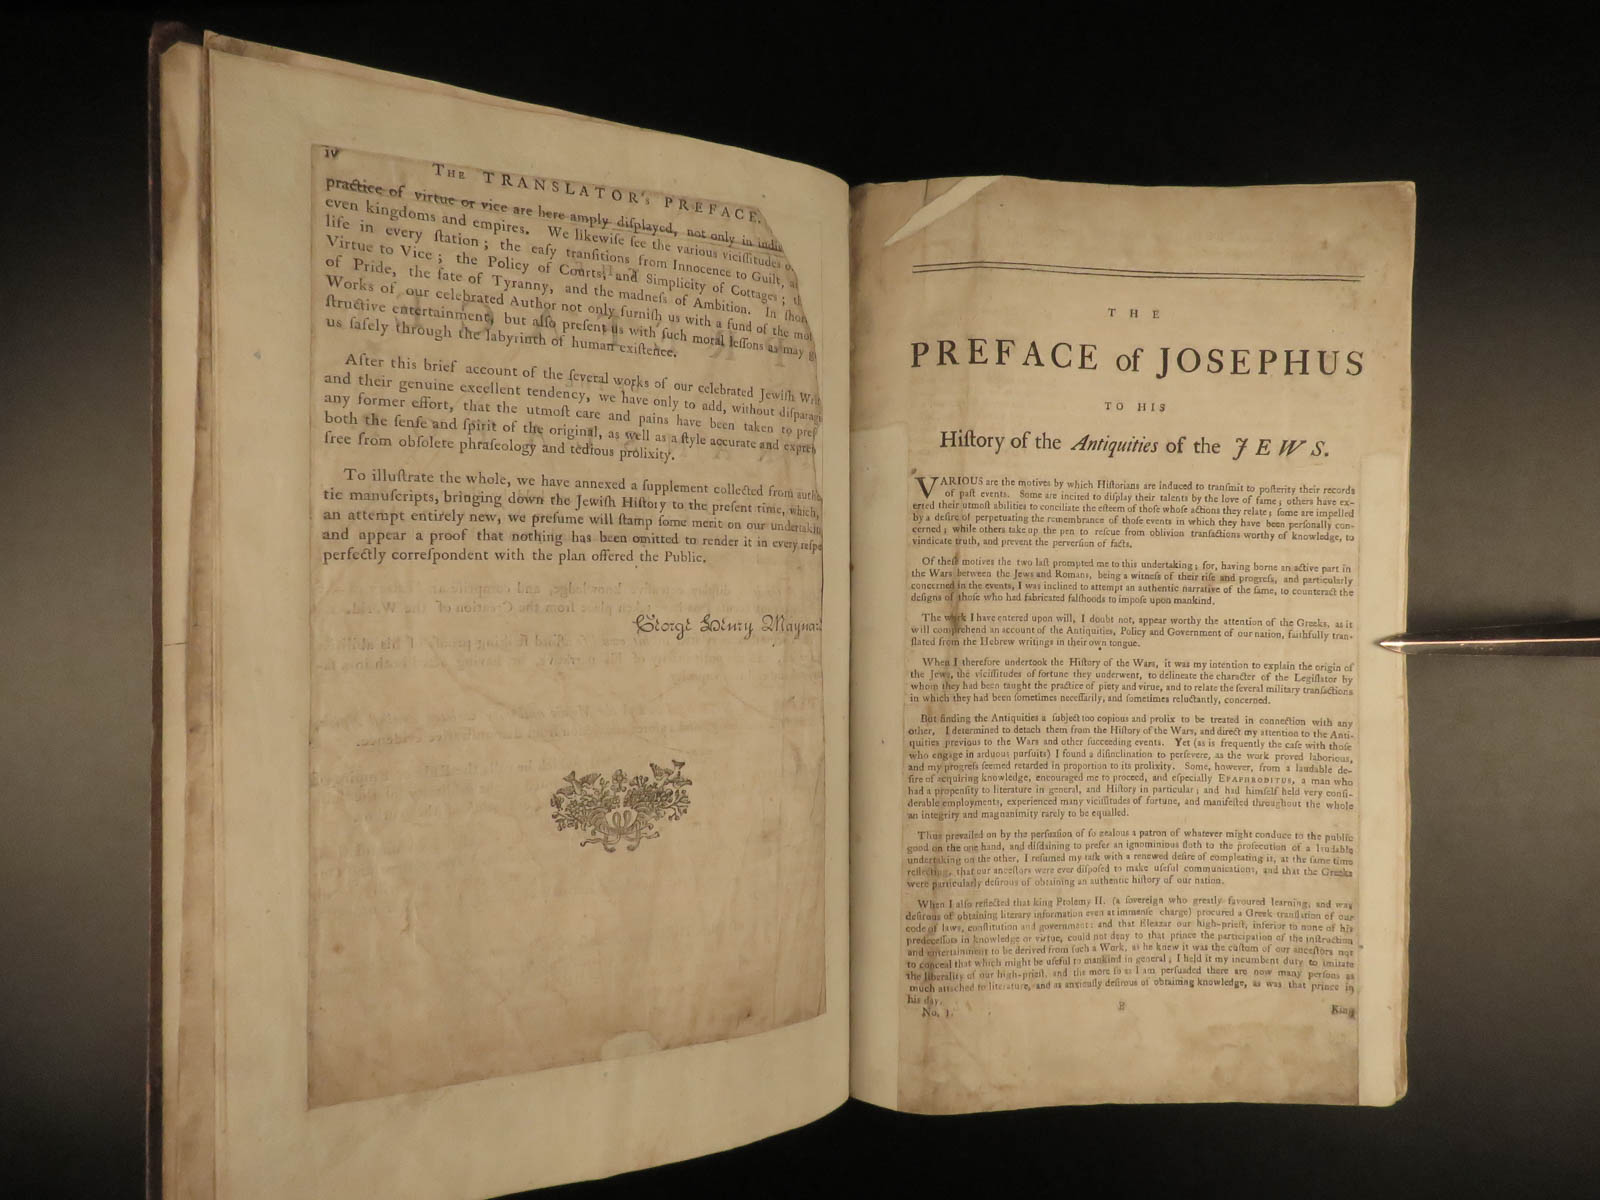 iv
The TRANSLATOR's PREFACE.
practice of virtue or vice are here amply diſplayed, not only in
even kingdoms and empires. We likewiſe ſee the various viciſſitudes
life in every ſtation; the eaſy tranſitions from Innocence to Guilt,
Virtue to Vice; the Policy of Courts, and Simplicity of Cottages;
of Pride, the fate of Tyranny, and the madneſs of Ambition. In
Works of our celebrated Author not only furniſh us with a fund of the
ſtructive entertainment, but alſo preſent us with ſuch moral leſſons as may
us ſafely through the labyrinth of human exiſtence.
After this brief account of the ſeveral works of our celebrated Jewiſh
and their genuine excellent tendency, we have only to add, without
any former effort, that the utmoſt care and pains have been taken to
both the ſenſe and ſpirit of the original, as well as a ſtyle accurate and
free from obſolete phraſeology and tedious prolixity.
To illuſtrate the whole, we have annexed a ſupplement collected from
tic manuſcripts, bringing down the Jewiſh Hiſtory to the preſent time, which,
an attempt entirely new, we preſume will ſtamp ſome merit on our
and appear a proof that nothing has been omitted to render it in every
perfectly correſpondent with the plan offered the Public.
George Henry
THE
PREFACE of JOSEPHUS
TO HIS
Hiſtory of the Antiquities of the JEWS.
VARIOUS are the motives by which Hiſtorians are induced to tranſmit to poſterity their records
of paſt events. Some are incited to diſplay their talents by the love of fame; others have ex-
erted their utmoſt abilities to conciliate the eſteem of thoſe whoſe actions they relate; ſome are impelled
by a deſire of perpetuating the remembrance of thoſe events in which they have been perſonally con-
cerned; while others take up the pen to reſcue from oblivion tranſactions worthy of knowledge, to
vindicate truth, and prevent the perverſion of facts.
Of theſe motives the two laſt prompted me to this undertaking; for, having borne an active part in
the Wars between the Jews and Romans, being a witneſs of their riſe and progreſs, and particularly
concerned in the events, I was inclined to attempt an authentic narrative of the ſame, to counteract the
deſigns of thoſe who had fabricated falſhoods to impoſe upon mankind.
The work I have entered upon will, I doubt not, appear worthy the attention of the Greeks, as it
will comprehend an account of the Antiquities, Policy and Government of our nation, faithfully tran-
ſlated from the Hebrew writings in their own tongue.
When I therefore undertook the Hiſtory of the Wars, it was my intention to explain the origin of
the Jews, the viciſſitudes of fortune they underwent, to delineate the character of the Legiſlator by
whom they had been taught the practice of piety and virtue, and to relate the ſeveral military tranſactions
in which they had been ſometimes neceſſarily, and ſometimes reluctantly, concerned.
But finding the Antiquities a ſubject too copious and prolix to be treated in connection with any
other, I determined to detach them from the Hiſtory of the Wars, and direct my attention to the Anti-
quities previous to the Wars and other ſucceeding events. Yet (as is frequently the caſe with thoſe
who engage in arduous purſuits) I found a diſinclination to perſevere, as the work proved laborious,
and my progreſs ſeemed retarded in proportion to its prolixity. Some, however, from a laudable de-
ſire of acquiring knowledge, encouraged me to proceed, and eſpecially EPAPHRODITUS, a man who
had a propenſity to literature in general, and Hiſtory in particular; and had himſelf held very conſi-
derable employments, experienced many viciſſitudes of fortune, and manifeſted throughout the whole
an integrity and magnanimity rarely to be equalled.
Thus prevailed on by the perſuaſion of ſo zealous a patron of whatever might conduce to the public
good on the one hand, and diſdaining to prefer an ignominious ſloth to the proſecution of a laudable
undertaking on the other, I reſumed my taſk with a renewed deſire of compleating it, at the ſame time
reflecting, that our anceſtors were ever diſpoſed to make uſeful communications, and that the Greeks
were particularly deſirous of obtaining an authentic hiſtory of our nation.
When I alſo reflected that king Ptolemy II. (a ſovereign who greatly favoured learning, and was
deſirous of obtaining literary information even at immenſe charge) procured a Greek tranſlation of our
code of laws, conſtitution and government: and that Eleazar our high-prieſt, inferior to none of his
predeceſſors in knowledge or virtue, could not deny to that prince the participation of the inſtruction
and entertainment to be derived from ſuch a Work, as he knew it was the cuſtom of our anceſtors not
to conceal that which might be uſeful to mankind in general; I held it my incumbent duty to imitate
the liberality of our high-prieſt, and the more ſo as I am perſuaded there are now many perſons as
much attached to literature, and as anxiouſly deſirous of obtaining knowledge, as was that prince in
his day.
No. 1. B King